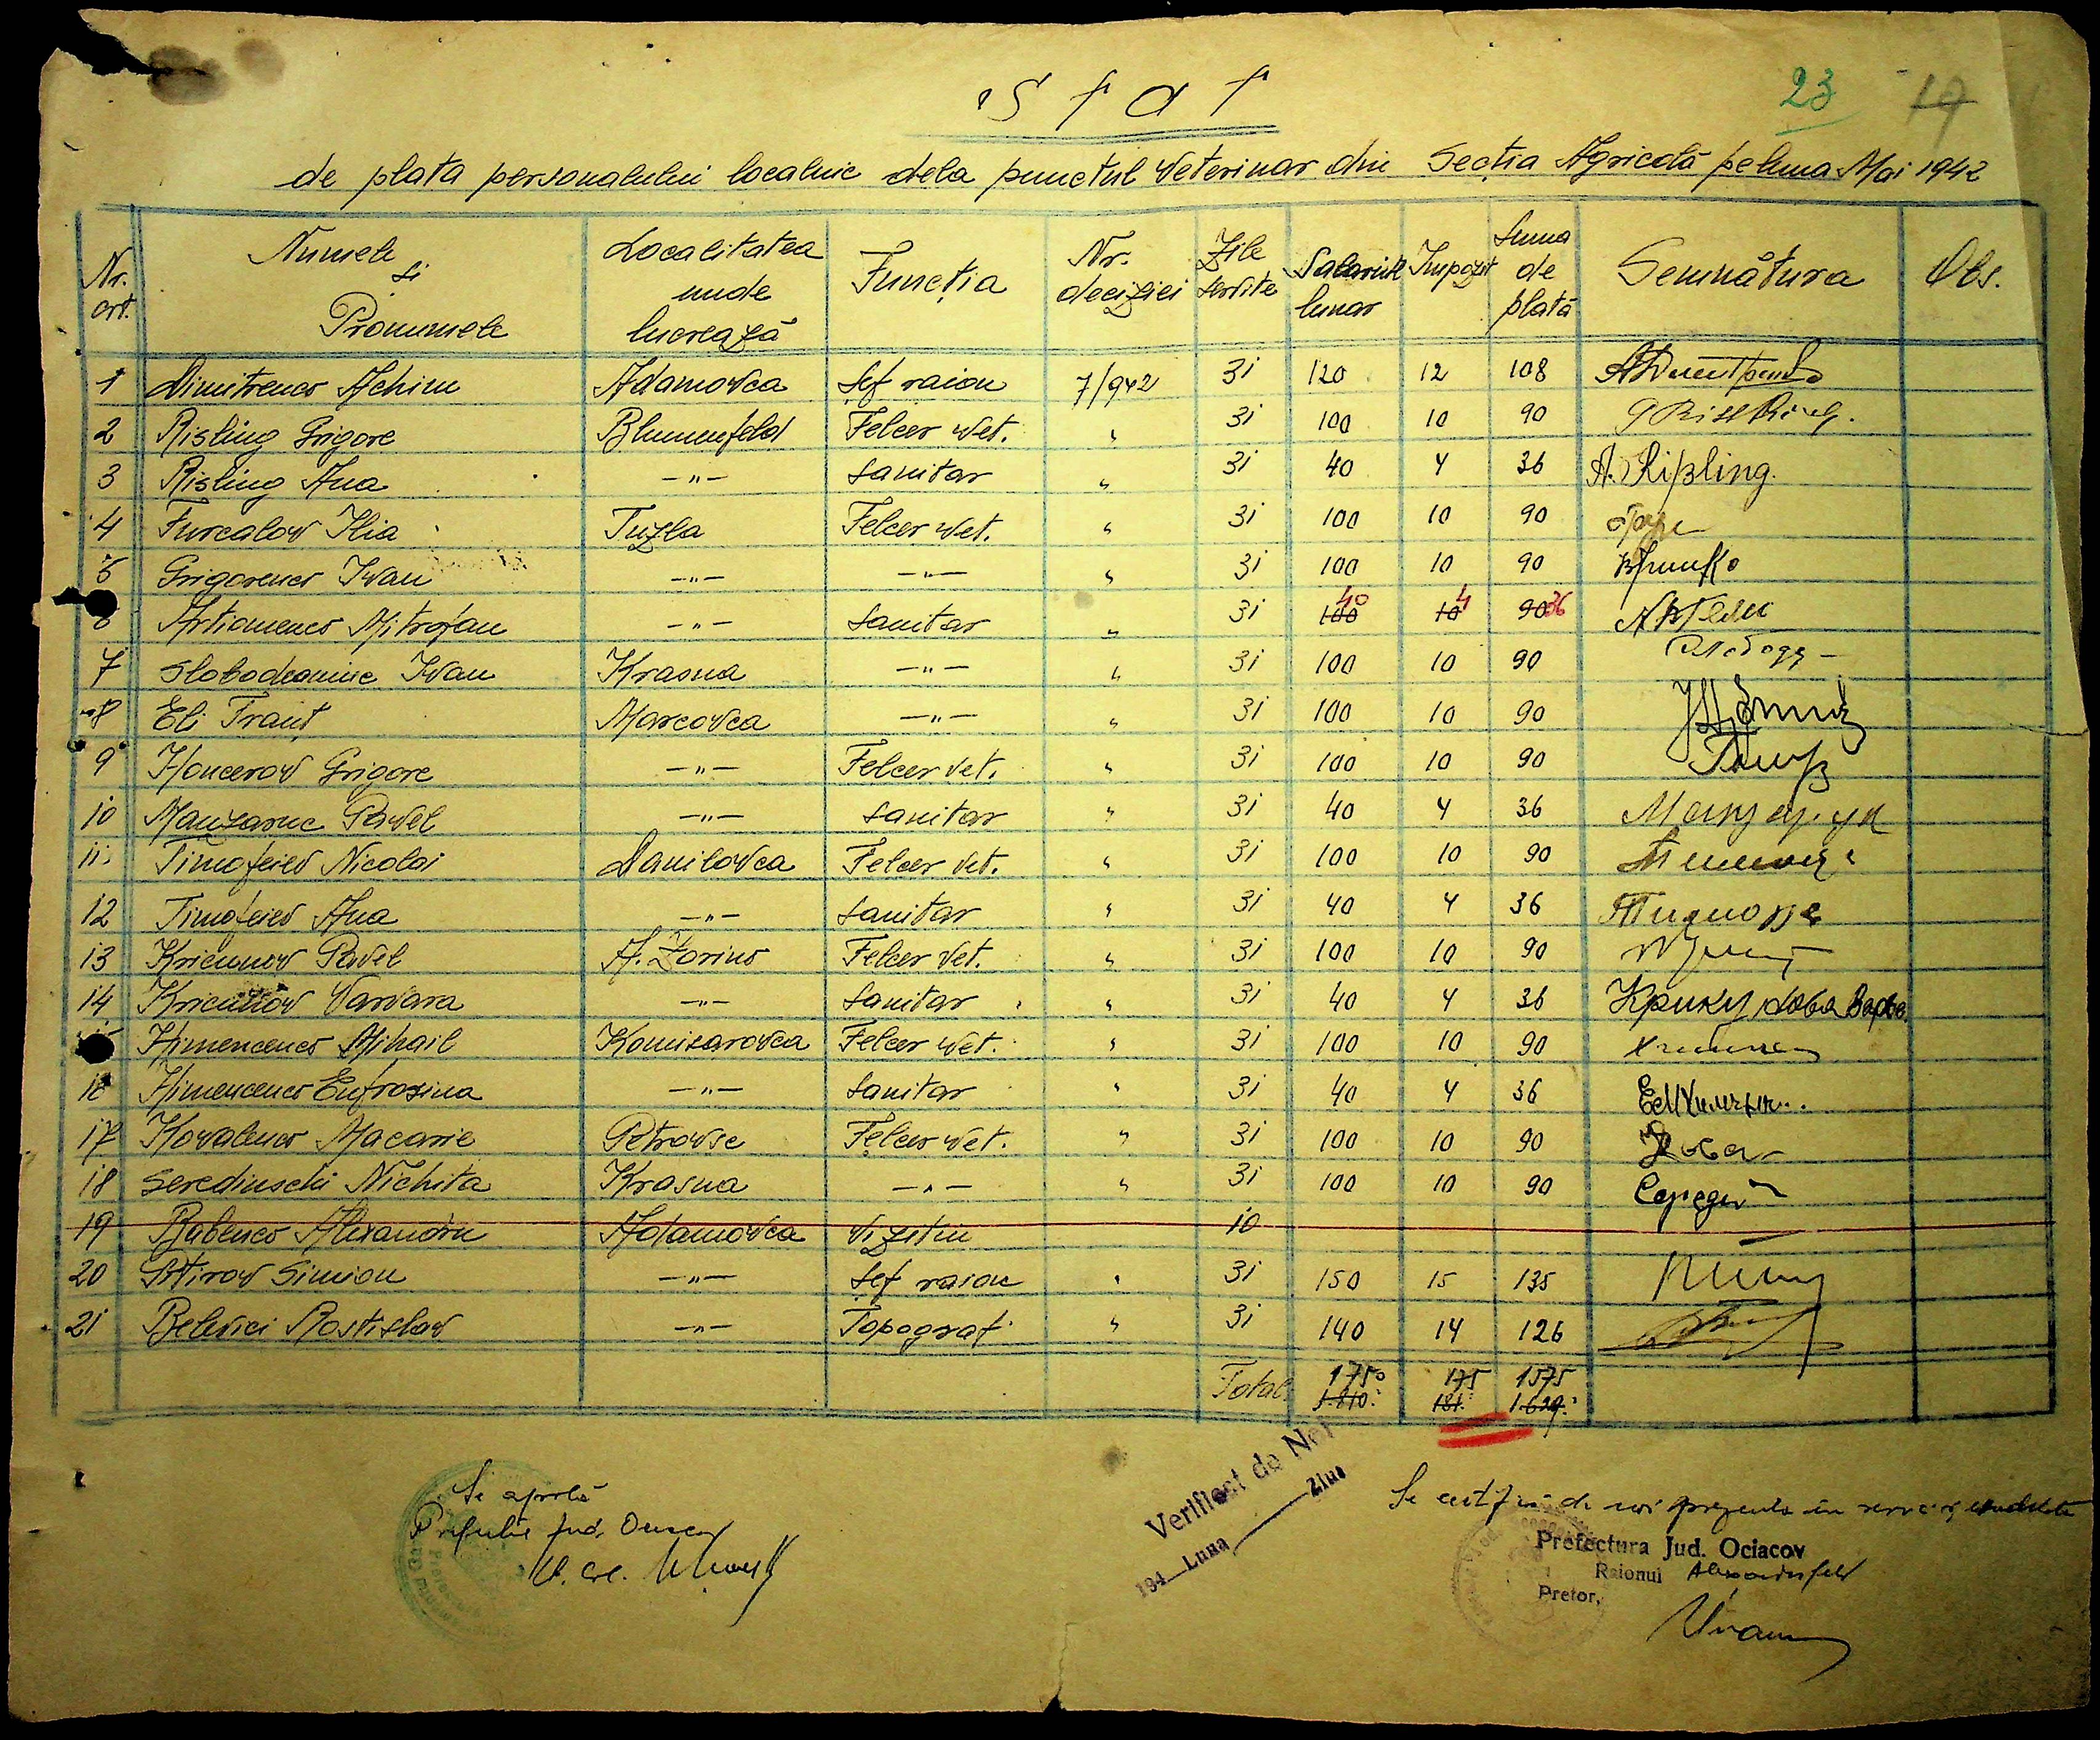 23 17
Stat
de plata personalului localnic dela punctul Veterinar din Secția Agricolă pe luna Mai 1942
Nr. crt. Numele și Pronumele Localitatea unde lucrează Funcția Nr. deciziei Zile servite Salariul lunar Impozit Suma de plată Semnătura Obs.
1 Dimitrenco Achim Adamovca Șef raion 7/942 31 120 12 108
2 Risling Grigore Blumenfeld Felcer vet. " 31 100 10 90
3 Risling Ana -"- Sanitar " 31 40 4 36 A. Rißling.
4 Furcalow Ilia Tuzla Felcer vet. " 31 100 10 90
5 Grigorenco Iwan -"- -"- " 31 100 10 90
6 Artiomenco Mitrofan -"- Sanitar " 31 100 40 10 4 90 36
7 Slobodeaniuc Iwan Krasna -"- " 31 100 10 90 Слободя
8 Eli Franț Marcovca -"- " 31 100 10 90
9 Honcerow Grigore -"- Felcer vet. " 31 100 10 90
10 Manzaruc Pavel -"- Sanitar " 31 40 4 36 Манзарук
11 Timofeiev Nicolai Danilovca Felcer vet. " 31 100 10 90
12 Timofeiev Ana -"- Sanitar " 31 40 4 36
13 Kricunow Pavel A. Zorino Felcer vet. " 31 100 10 90
14 Kricunow Varvara -"- Sanitar " 31 40 4 36
Himencenco Mihail Komisarovca Felcer vet. " 31 100 10 90
16 Himencenco Eufrosina -"- Sanitar " 31 40 4 36
17 Kovalenco Macarie Petrovsc Felcer vet. " 31 100 10 90
18 Seredinschi Nichita Krasna -"- " 31 100 10 90
19 Babenco Alexandru Adamovca Vizitiu 10
20 Simion -"- Șef raion " 31 150 15 135
21 Belevici Rostislav -"- Topograf " 31 140 14 126
Total 1750 175 1575
1.810. 181. 1.629.
Se aprobă
Prefectul Jud.
Verificat de Noi
194 Luna Ziua
Se certifică de noi prezența în serviciu
Prefectura Jud. Ociacov
Raionul Alexanderfeld
Pretor,